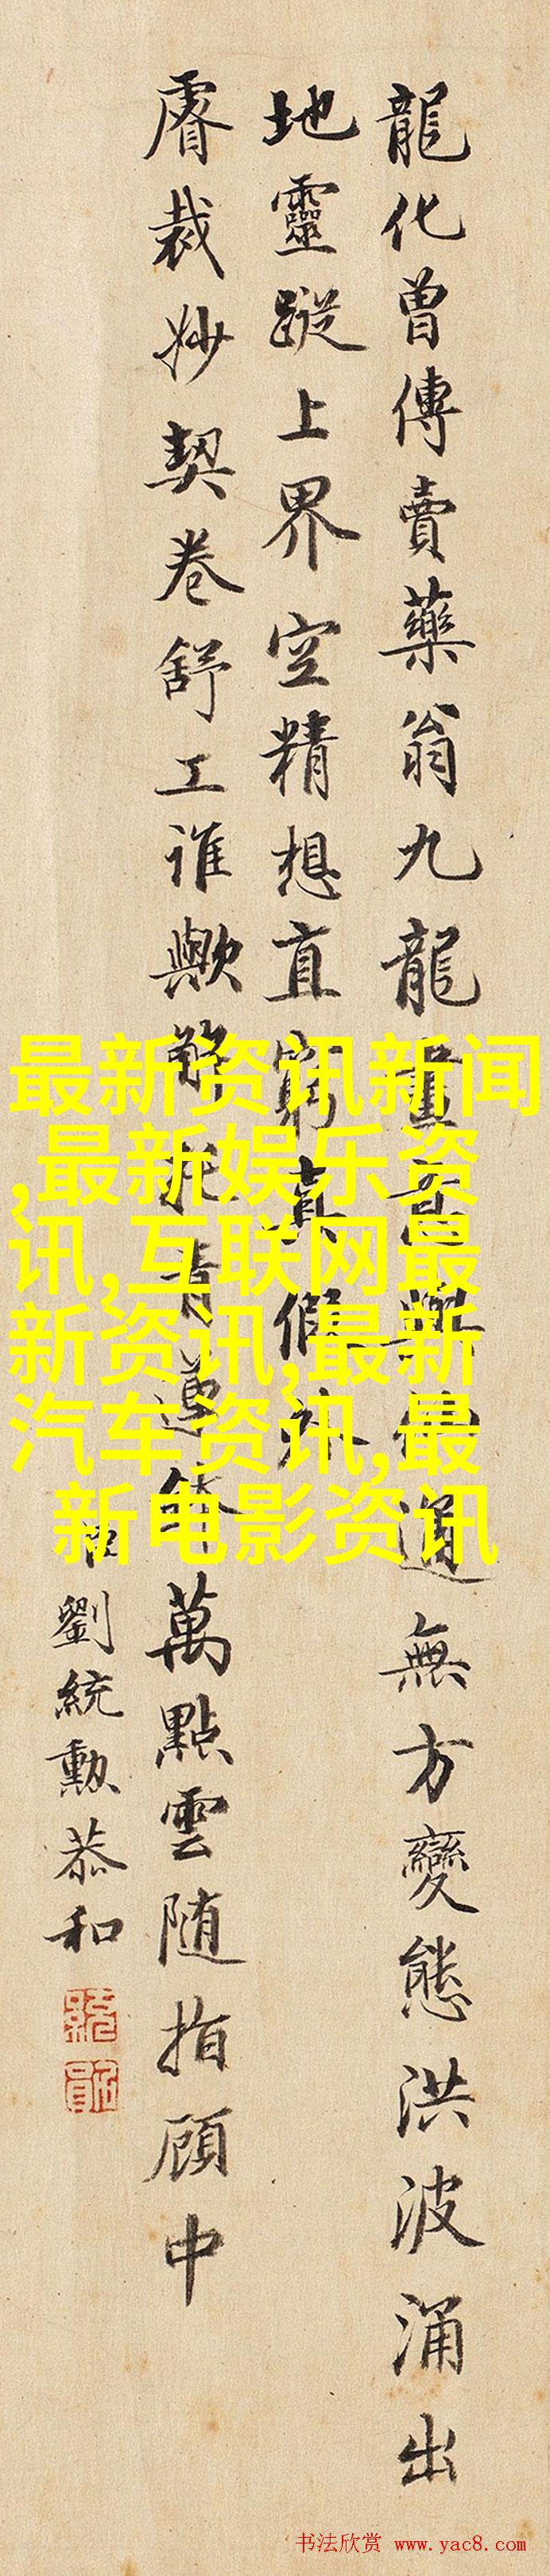 龍化曾傳賣藥翁九龍畫意與俱通無方變態洪波涌出
地靈蹤上界空精想直窮真假外
睿裁妙契卷舒工誰歟能萬點雲随指顧中
臣劉統勳恭和
最新资讯新闻
,最新娱乐资
讯,互联网最
新资讯,最新
汽车资讯,最
新电影资讯
书法欣赏 www.yac8.com